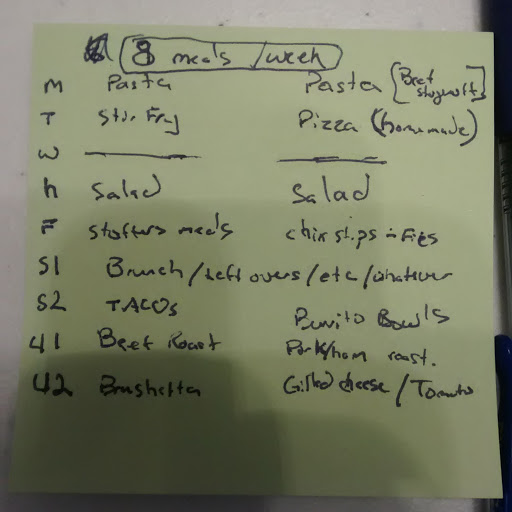 8 meals/week
M Pasta Pasta [Beef
T Stir Fry Pizza (homemade)
W
h Salad Salad
F stoffers meals chix stips
S1 Brunch/Left overs/etc/whatever
S2 TACOs Burrito Bowls
41 Beef Roast Pork/ham roast.
42 Brushetta Grilled cheese/Tomato